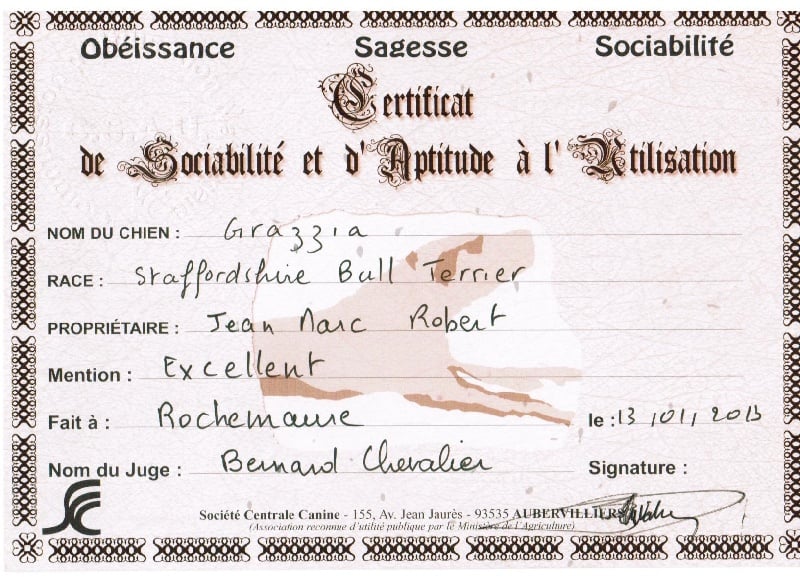 Obéissance Sagesse Sociabilité
Certificat
de Sociabilité et d'Aptitude à l'Utilisation
NOM DU CHIEN : Grazzia
RACE : Staffordshire Bull Terrier
PROPRIÉTAIRE : Jean Marc Robert
Mention : Excellent
Fait à : Rochemaure le : 13 / 01 / 2013
Nom du Juge : Bernard Chevalier Signature :
Société Centrale Canine - 155, Av. Jean Jaurès - 93535 AUBERVILLIERS
(Association reconnue d'utilité publique par le Ministère de l'Agriculture)